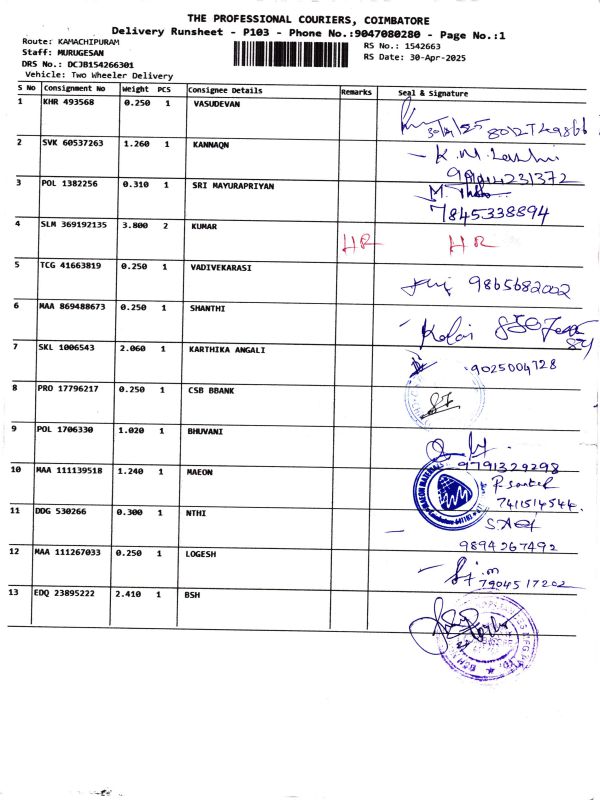 THE PROFESSIONAL COURIERS, COIMBATORE
Delivery Runsheet - P103 - Phone No.:9047080280 - Page No.:1
Route: KAMACHIPURAM
RS No.: 1542663
Staff: MURUGESAN
RS Date: 30-Apr-2025
DRS No.: DCJB154266301
Vehicle: Two Wheeler Delivery
S No Consignment No Weight PCS Consignee Details Remarks Seal & Signature
1 KHR 493568 0.250 1 VASUDEVAN
2 SVK 60537263 1.260 1 KANNAQN
3 POL 1382256 0.310 1 SRI MAYURAPRIYAN
7845338894
4 SLM 369192135 3.800 2 KUMAR HR HR
5 TCG 41663819 0.250 1 VADIVEKARASI
9865682002
6 MAA 869488673 0.250 1 SHANTHI
Kalai
7 SKL 1006543 2.060 1 KARTHIKA ANGALI
9025004728
8 PRO 17796217 0.250 1 CSB BBANK
9 POL 1706330 1.020 1 BHUVANI
9791329298
10 MAA 111139518 1.240 1 MAEON
7411514544
11 DDG 530266 0.300 1 NTHI
9894267492
12 MAA 111267033 0.250 1 LOGESH
7904517202
13 EDQ 23895222 2.410 1 BSH